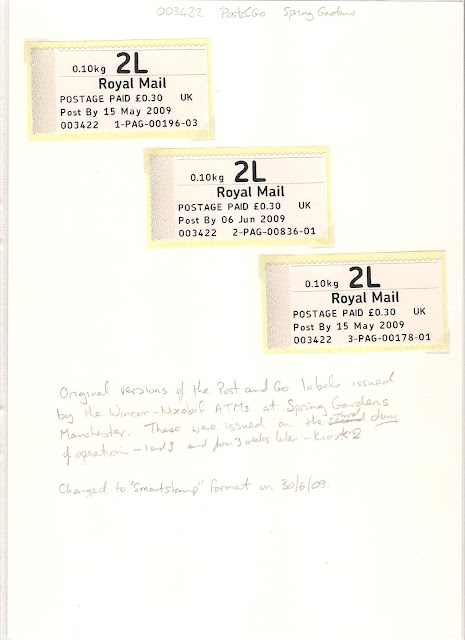 003422 Post&Go Spring Gardens
0.10kg 2L
Royal Mail
POSTAGE PAID £0.30 UK
Post By 15 May 2009
003422 1-PAG-00196-03
0.10kg 2L
Royal Mail
POSTAGE PAID £0.30 UK
Post By 06 Jun 2009
003422 2-PAG-00836-01
0.10kg 2L
Royal Mail
POSTAGE PAID £0.30 UK
Post By 15 May 2009
003422 3-PAG-00178-01
Original versions of the Post and Go labels issued
by the Wincor-Nixdorf ATMs at Spring Gardens
Manchester. These were issued on the third day
of operation - 1 and 3 and 3 weeks later - Kiosk 2
Changed to "Smartstamp" format on 30/6/09.